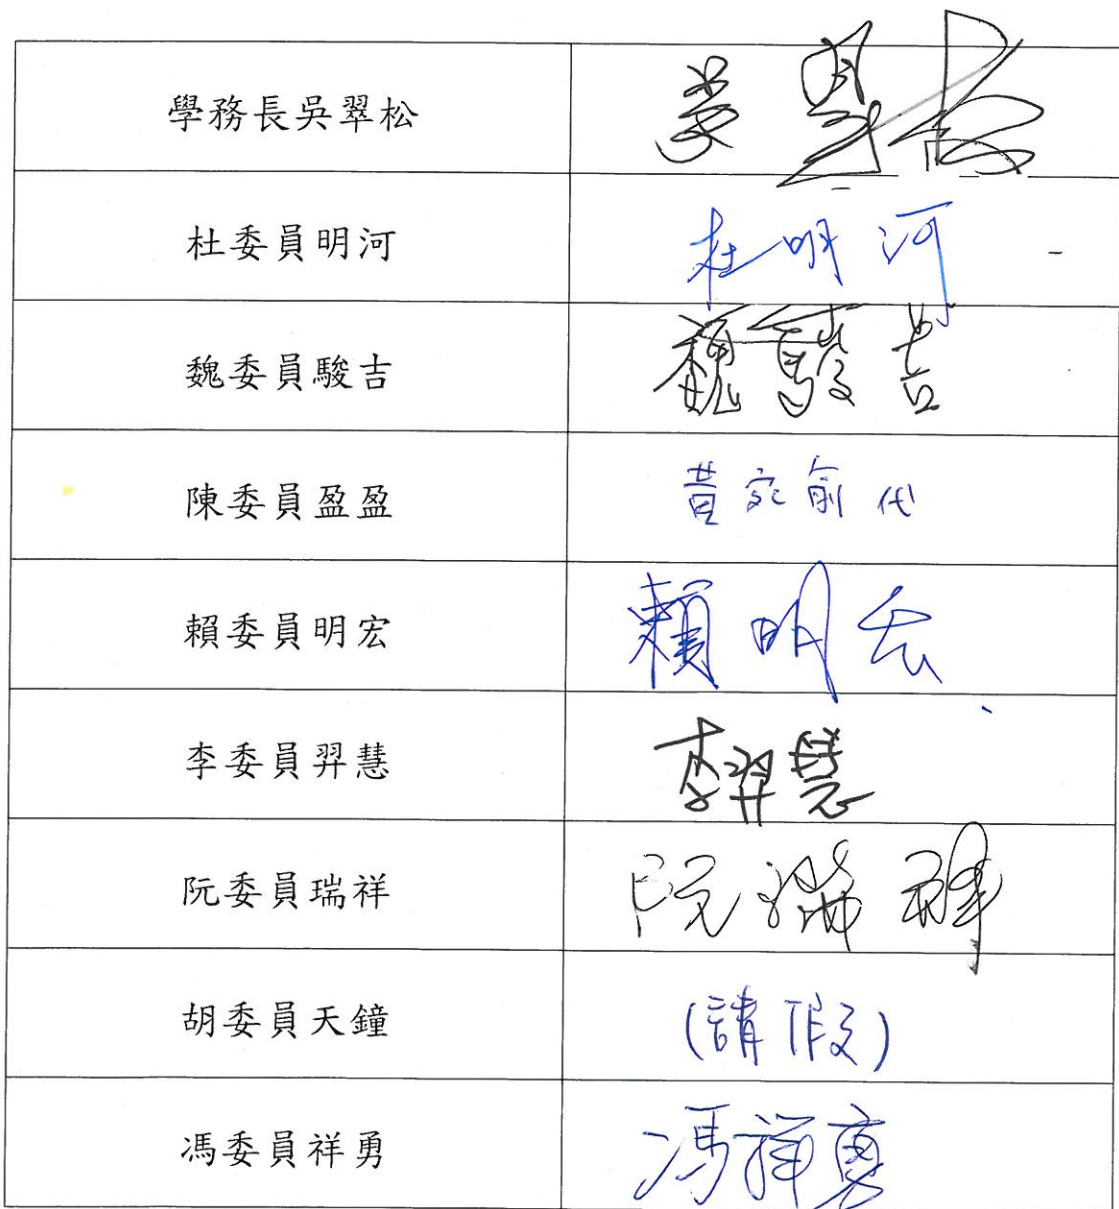 學務長吳翠松
吳翠松
杜委員明河
杜明河
魏委員駿吉
魏駿吉
陳委員盈盈
黃宛俞代
賴委員明宏
賴明宏
李委員羿慧
李羿慧
阮委員瑞祥
阮瑞祥
胡委員天鐘
(請假)
馮委員祥勇
馮祥勇